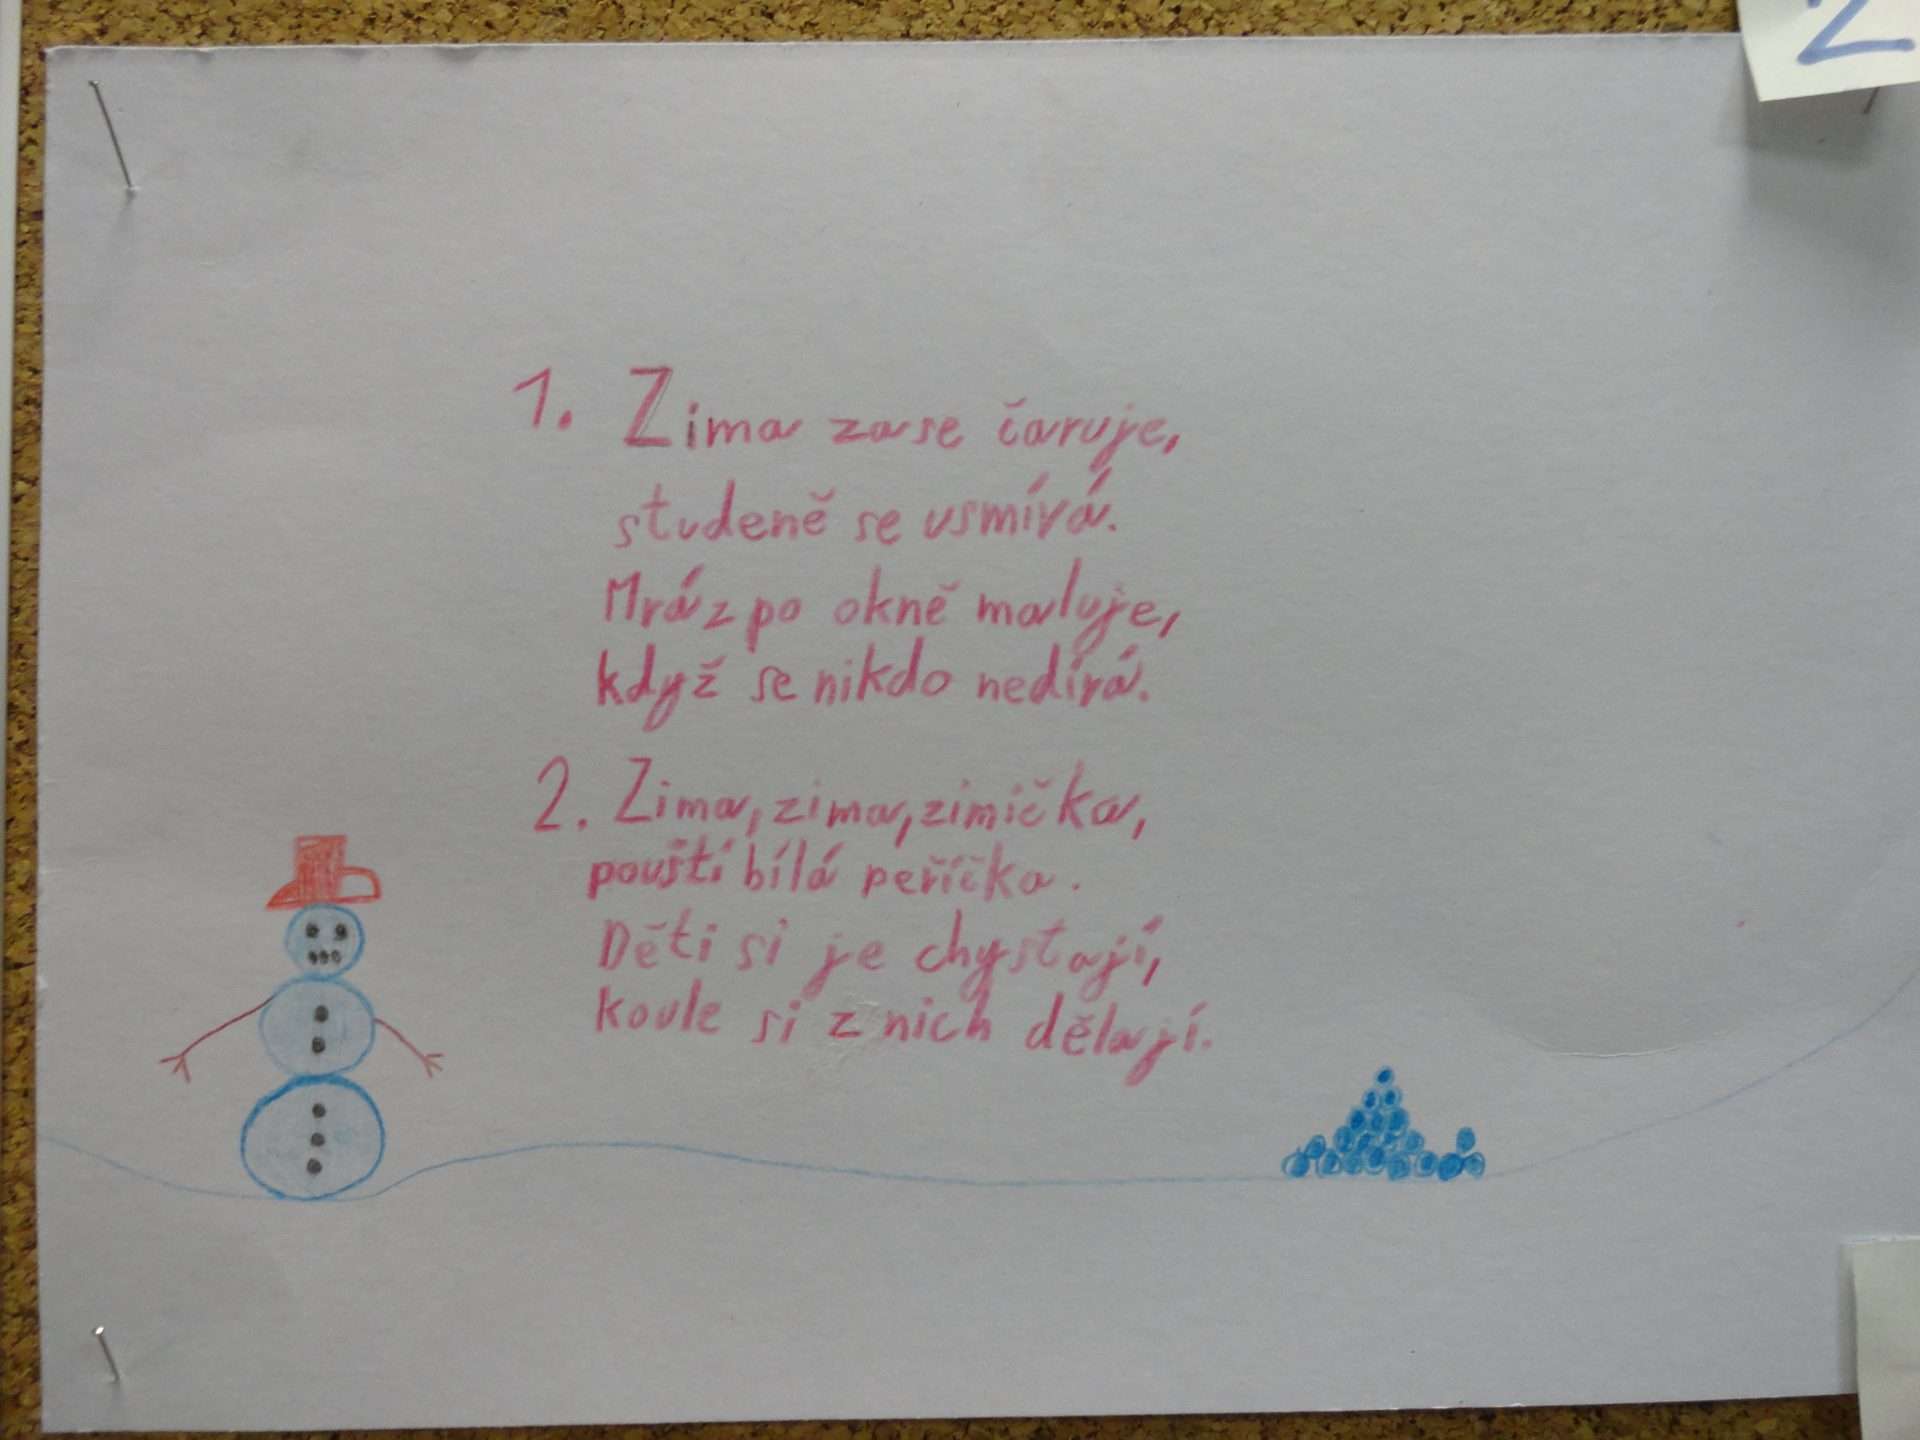 2
1. Zima zase čaruje,
studeně se usmívá.
Mráz po okně maluje,
když se nikdo nedívá.
2. Zima, zima, zimička,
pouští bílá peříčka.
Děti si je chystají,
koule si z nich dělají.